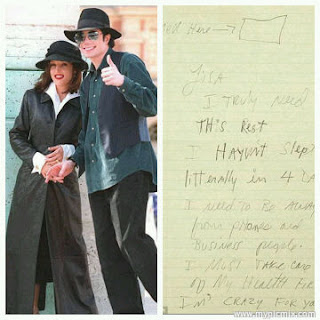 Here
LISA
I Truly need
THIS REST
I HAVIN'T Slep
litterally in 4
I need to Be AWA
from phones and
Business people.
I Must TAKe Care
of My Health Fir
I'M CRAZY FOR YO
www.mypicmix.com